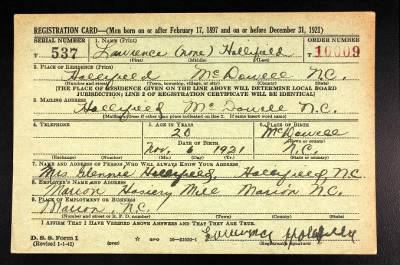 REGISTRATION CARD—(Men born on or after February 17, 1897 and on or before December 31, 1921)
SERIAL NUMBER 1. NAME (Print) ORDER NUMBER
T 537 Lawrence (none) Hollifield T 10009
(First) (Middle) (Last)
2. PLACE OF RESIDENCE (Print)
Hollifield McDowell N.C.
(Number and street) (Town, township, village, or city) (County) (State)
[THE PLACE OF RESIDENCE GIVEN ON THE LINE ABOVE WILL DETERMINE LOCAL BOARD
JURISDICTION; LINE 2 OF REGISTRATION CERTIFICATE WILL BE IDENTICAL]
3. MAILING ADDRESS
Hollyfield McDowell N.C.
[Mailing address if other than place indicated on line 2. If same insert word same]
4. TELEPHONE 5. AGE IN YEARS 6. PLACE OF BIRTH
20 McDowell
DATE OF BIRTH (Town or county)
Nov. 6 1921 N.C.
(Exchange) (Number) (Mo.) (Day) (Yr.) (State or country)
7. NAME AND ADDRESS OF PERSON WHO WILL ALWAYS KNOW YOUR ADDRESS
Mrs Glennie Hollyfield, Hollyfield, N.C.
8. EMPLOYER'S NAME AND ADDRESS
Marion Hosiery Mill Marion N.C.
9. PLACE OF EMPLOYMENT OR BUSINESS
Marion, N.C.
(Number and street or R. F. D. number) (Town) (County) (State)
I AFFIRM THAT I HAVE VERIFIED ABOVE ANSWERS AND THAT THEY ARE TRUE.
D. S. S. Form 1
(Revised 1-1-42) GPO 16—21630-1 (Registrant's signature)